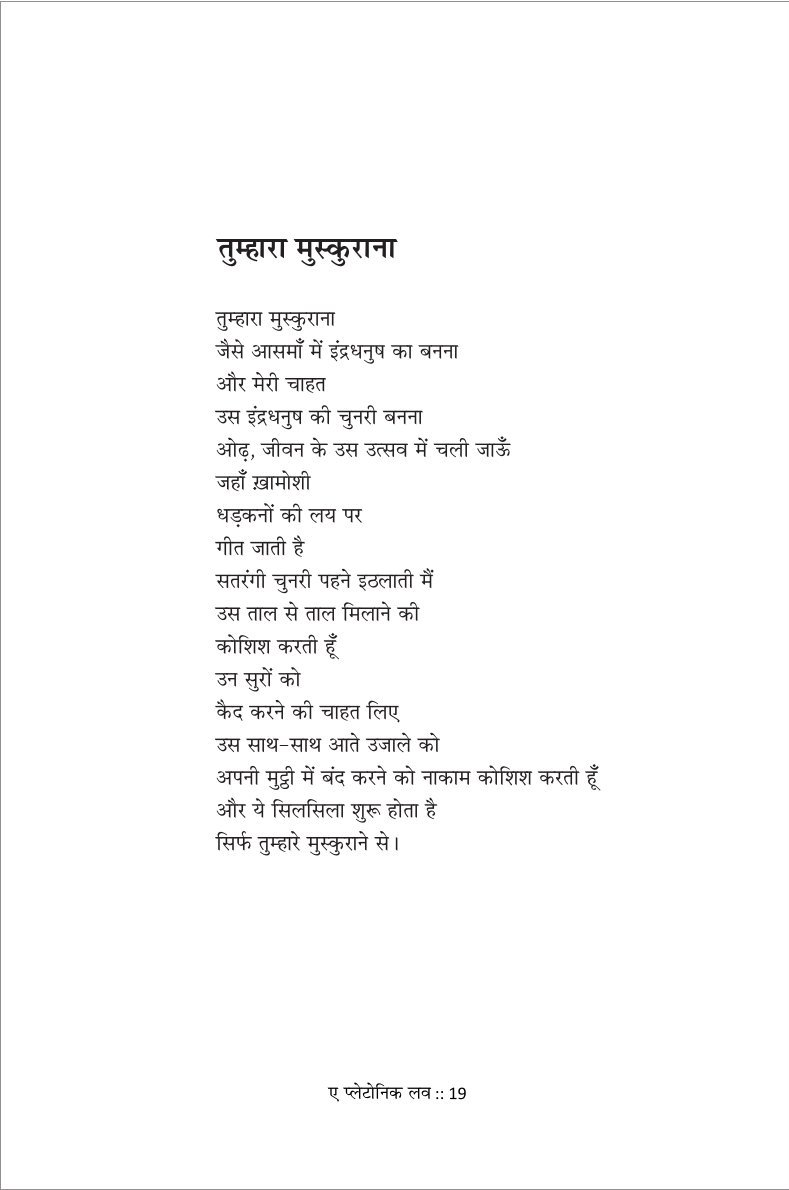 तुम्हारा मुस्कुराना
तुम्हारा मुस्कुराना
जैसे आसमाँ में इंद्रधनुष का बनना
और मेरी चाहत
उस इंद्रधनुष की चुनरी बनना
ओढ़, जीवन के उस उत्सव में चली जाऊँ
जहाँ ख़ामोशी
धड़कनों की लय पर
गीत जाती है
सतरंगी चुनरी पहने इठलाती मैं
उस ताल से ताल मिलाने की
कोशिश करती हूँ
उन सुरों को
कैद करने की चाहत लिए
उस साथ-साथ आते उजाले को
अपनी मुट्ठी में बंद करने को नाकाम कोशिश करती हूँ
और ये सिलसिला शुरू होता है
सिर्फ तुम्हारे मुस्कुराने से।
ए प्लेटोनिक लव :: 19